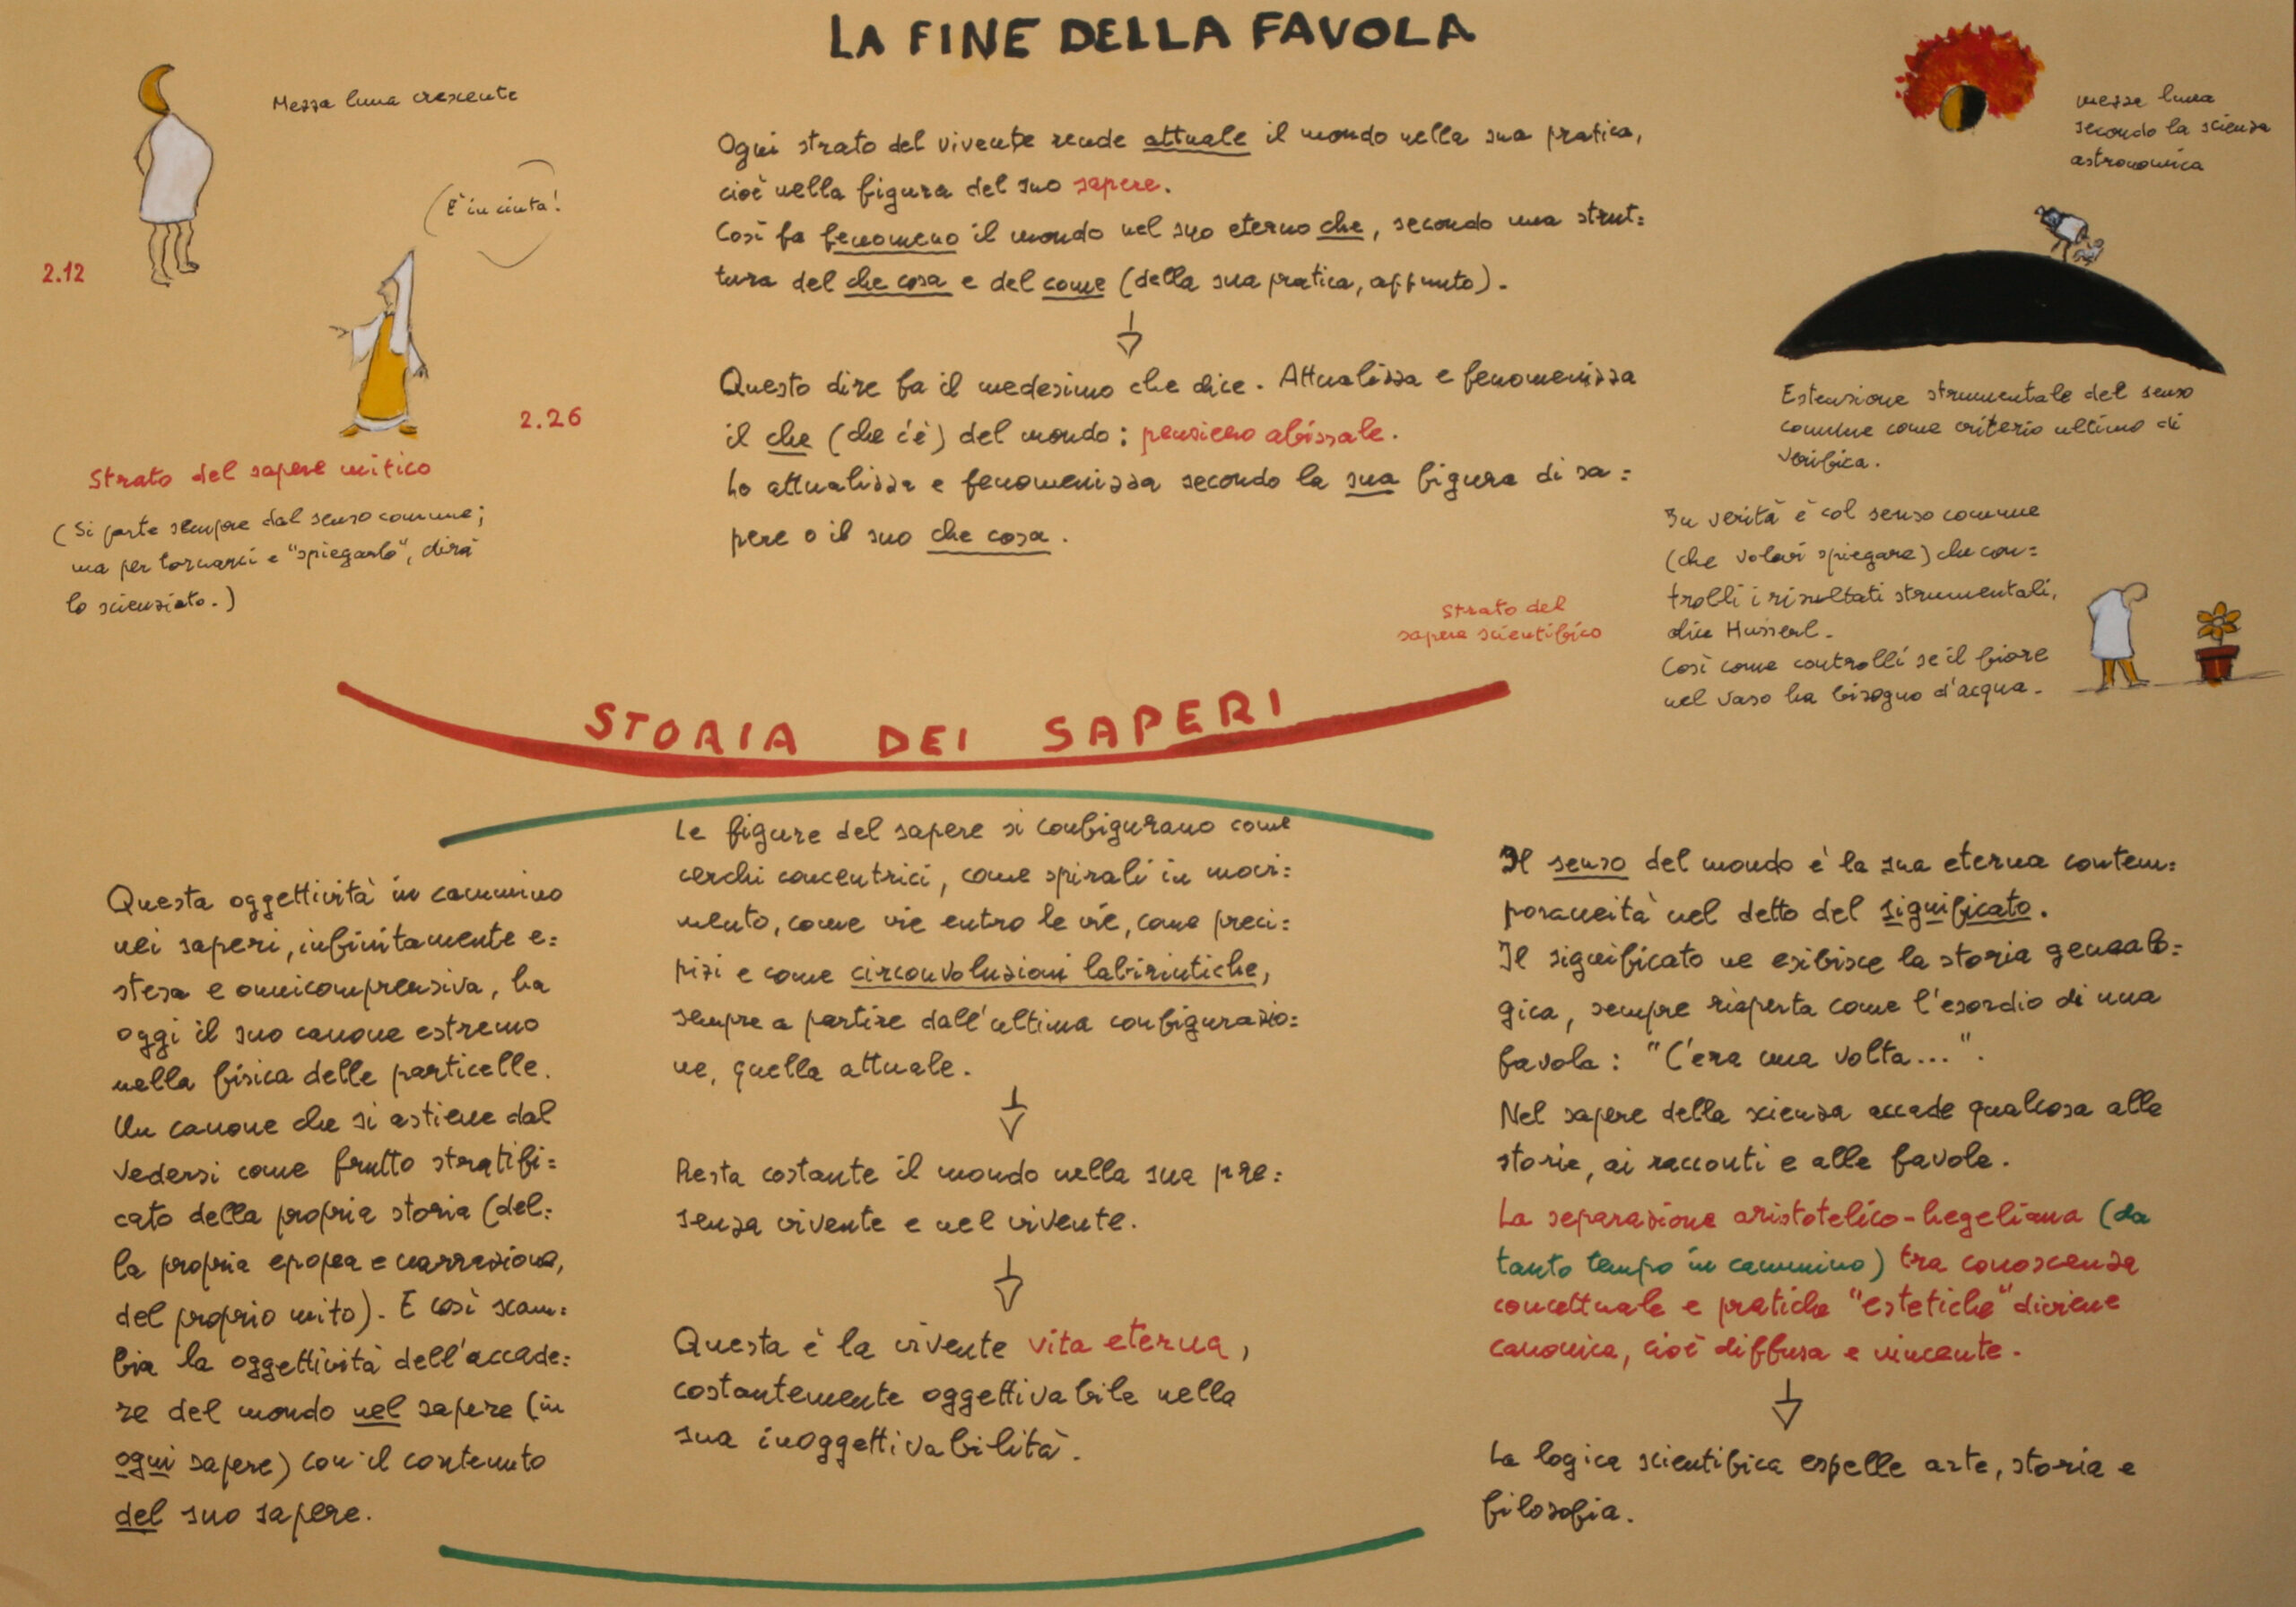 LA FINE DELLA FAVOLA
Mezza luna crescente
È incinta!
2.12
2.26
Strato del sapere mitico
(Si parte sempre dal senso comune;
ma per tornarci e "spiegarlo", dirà
lo scienziato.)
Ogni strato del vivente rende attuale il mondo nella sua pratica,
cioè nella figura del suo sapere.
Così fa fenomeno il mondo nel suo eterno che, secondo una strut=
tura del che cosa e del come (della sua pratica, appunto).
Questo dire fa il medesimo che dice. Attualizza e fenomenizza
il che (che c'è) del mondo: pensiero abissale.
Lo attualizza e fenomenizza secondo la sua figura di sa=
pere o il suo che cosa.
mezza luna
secondo la scienza
astronomica
Estensione strumentale del senso
comune come criterio ultimo di
verifica.
In verità è col senso comune
(che volevi spiegare) che con=
trolli i risultati strumentali,
dice Husserl.
Così come controlli se il fiore
nel vaso ha bisogno d'acqua.
Strato del
sapere scientifico
STORIA DEI SAPERI
Questa oggettività in cammino
nei saperi, infinitamente e=
stesa e omnicomprensiva, ha
oggi il suo canone estremo
nella fisica delle particelle.
Un canone che si astiene dal
vedersi come frutto stratifi=
cato della propria storia (del=
la propria epopea e narrazione,
del proprio mito). E così scam=
bia la oggettività dell'accade=
re del mondo nel sapere (in
ogni sapere) con il contenuto
del suo sapere.
Le figure del sapere si configurano come
cerchi concentrici, come spirali in movi=
mento, come vie entro le vie, come preci=
pizi e come circonvoluzioni labirintiche,
sempre a partire dall'ultima configurazio=
ne, quella attuale.
Resta costante il mondo nella sua pre=
senza vivente e nel vivente.
Questa è la vivente vita eterna,
costantemente oggettivabile nella
sua inoggettivabilità.
Il senso del mondo è la sua eterna contem=
poraneità nel detto del significato.
Il significato ne esibisce la storia genealo=
gica, sempre riaperta come l'esordio di una
favola: "C'era una volta...".
Nel sapere della scienza accade qualcosa alle
storie, ai racconti e alle favole.
La separazione aristotelico-hegeliana (da
tanto tempo in cammino) tra conoscenza
concettuale e pratiche "estetiche" diviene
canonica, cioè diffusa e vincente.
La logica scientifica espelle arte, storia e
filosofia.